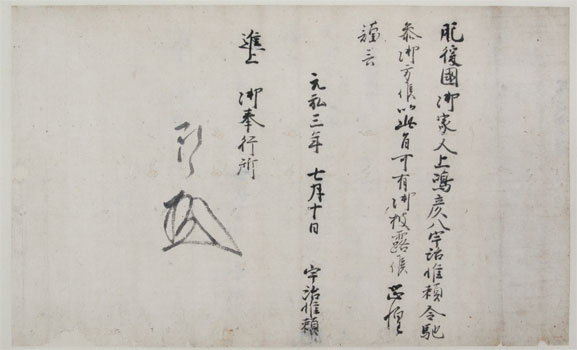 肥後國御家人上嶋彦八宇治惟頼令馳
参御方候以此旨可有御披露候恐惶
謹言
元弘三年七月十日　宇治惟頼
進上　御奉行所